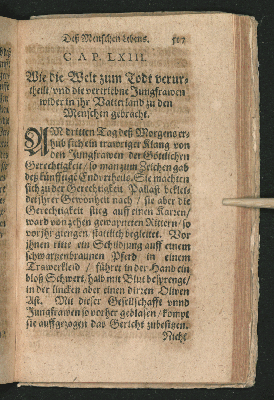 Deß Menschen Lebens. 502
CAP. LXIII.
Wie die Welt zum Todt verur-
theilt / vnd die vertriebne Jungfrawen
wider in jhr Vatterland zu den
Menschen gebracht.
AM dritten Tag deß Morgens er-
hub sich ein trawriger Klang von
den Jungfrawen der Göttlichen
Gerechtigkeit / so man zum Zeichen gab
deß künfftige Endvrtheils. Sie machten
sich zu der Gerechtigkeit Pallast beklei-
det jhrer Gewonheit nach / sie aber die
Gerechtigkeit stieg auff einen Karren /
ward von zehen gewapneten Rittern / so
vorjhr giengen stattlich begleitet. Vor
jhnen ritte ein Schildjung auff einem
schwartzenbraunen Pferd in einem
Trawerkleid / führet in der Hand ein
bloß Schwert / halb mit Blut besprenge /
in der lincken aber einen dürren Oliven
Ast. Mit dieser Gesellschafft vnnd
Jungfrawen so vorher geblasen / kompt
sie auffgezogen das Gericht zubesitzen.
Nicht